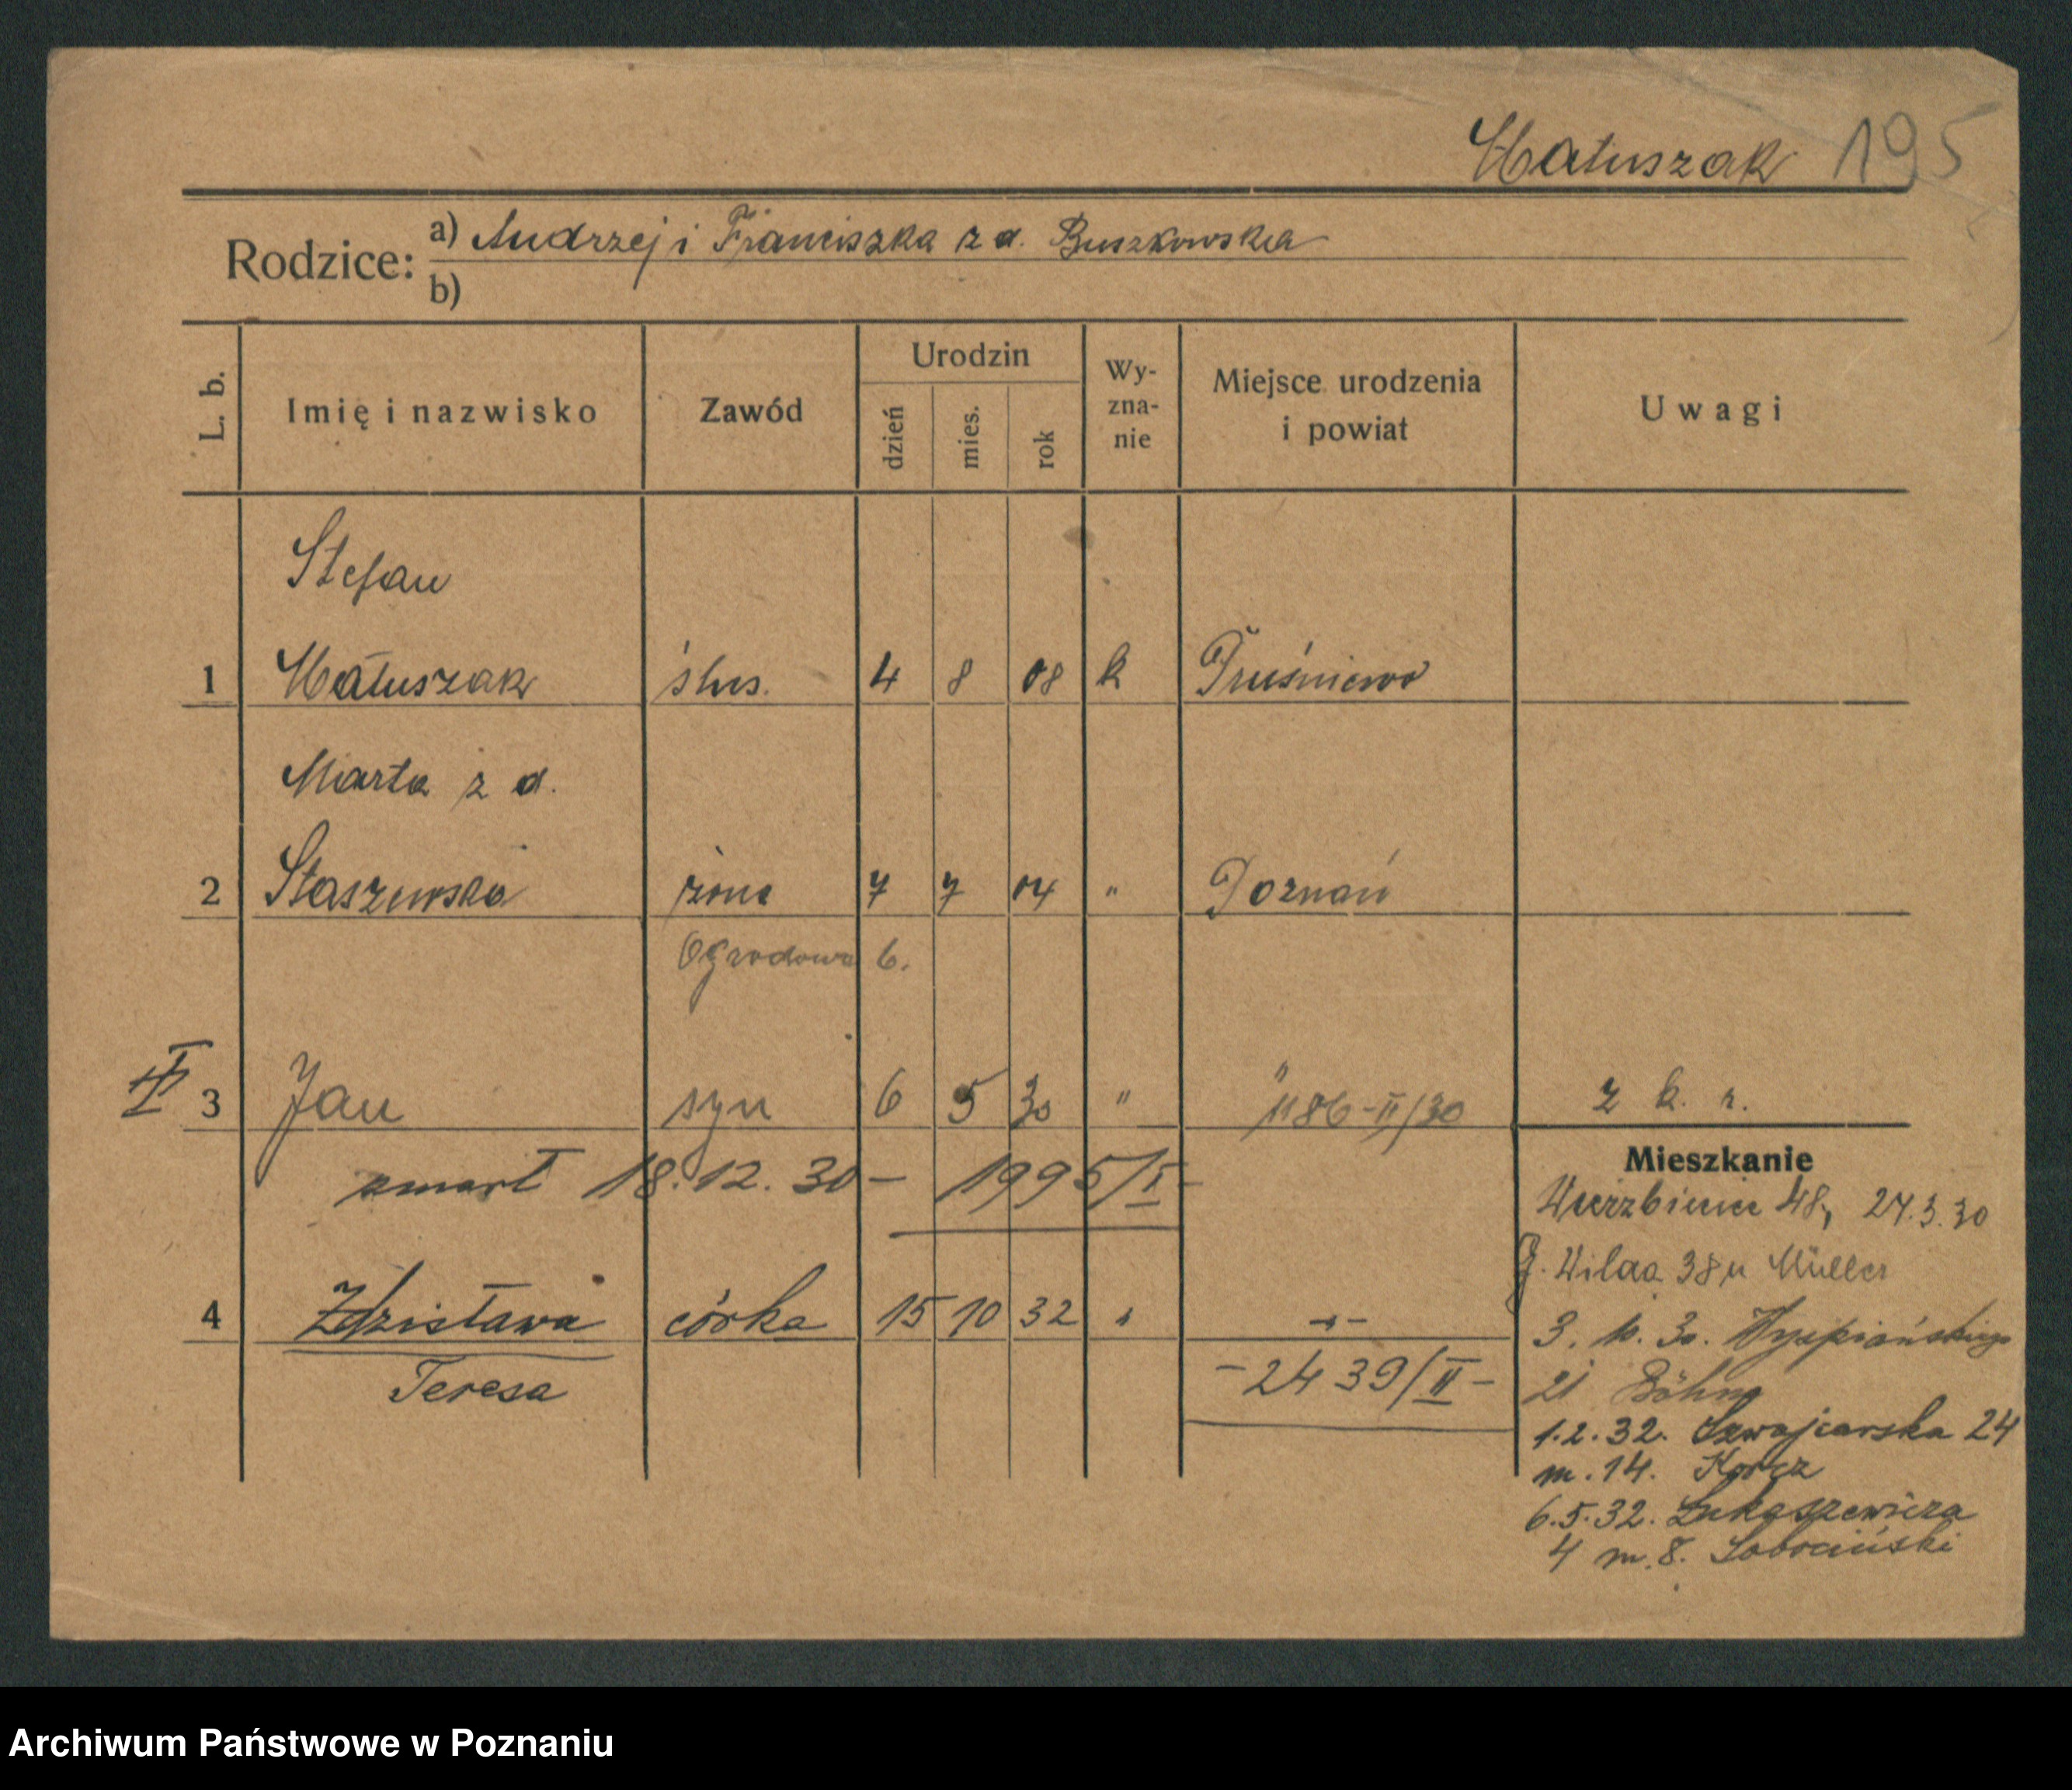 Matuszak 195
Rodzice: a) Andrzej i Franciszka z d. Buszkowska
b)
L. b. Imię i nazwisko Zawód Urodzin dzień mies. rok Wy-zna-nie Miejsce urodzenia i powiat Uwagi
Stefan
1 Matuszak ślus. 4 8 08 k
Marta z d.
2 Staszewska żona 7 7 04 " Poznań
Ogrodowa 6.
II 3 Jan syn 6 5 30 " " 1186-II/30 z k. r.
Mieszkanie
zmarł 18.12.30 – 1995/I –
Wierzbięcice 48, 27.3.30
G. Wilda 38 u Müller
4 Zdzisława córka 15 10 32 " -"-
3. 10. 30. Wyspiańskiego
Teresa – 2439/II –
21
1.2.32. Szwajcarska 24
m. 14.
6.5.32. Łukaszewicza
4 m. 8. Sobociński
Archiwum Państwowe w Poznaniu